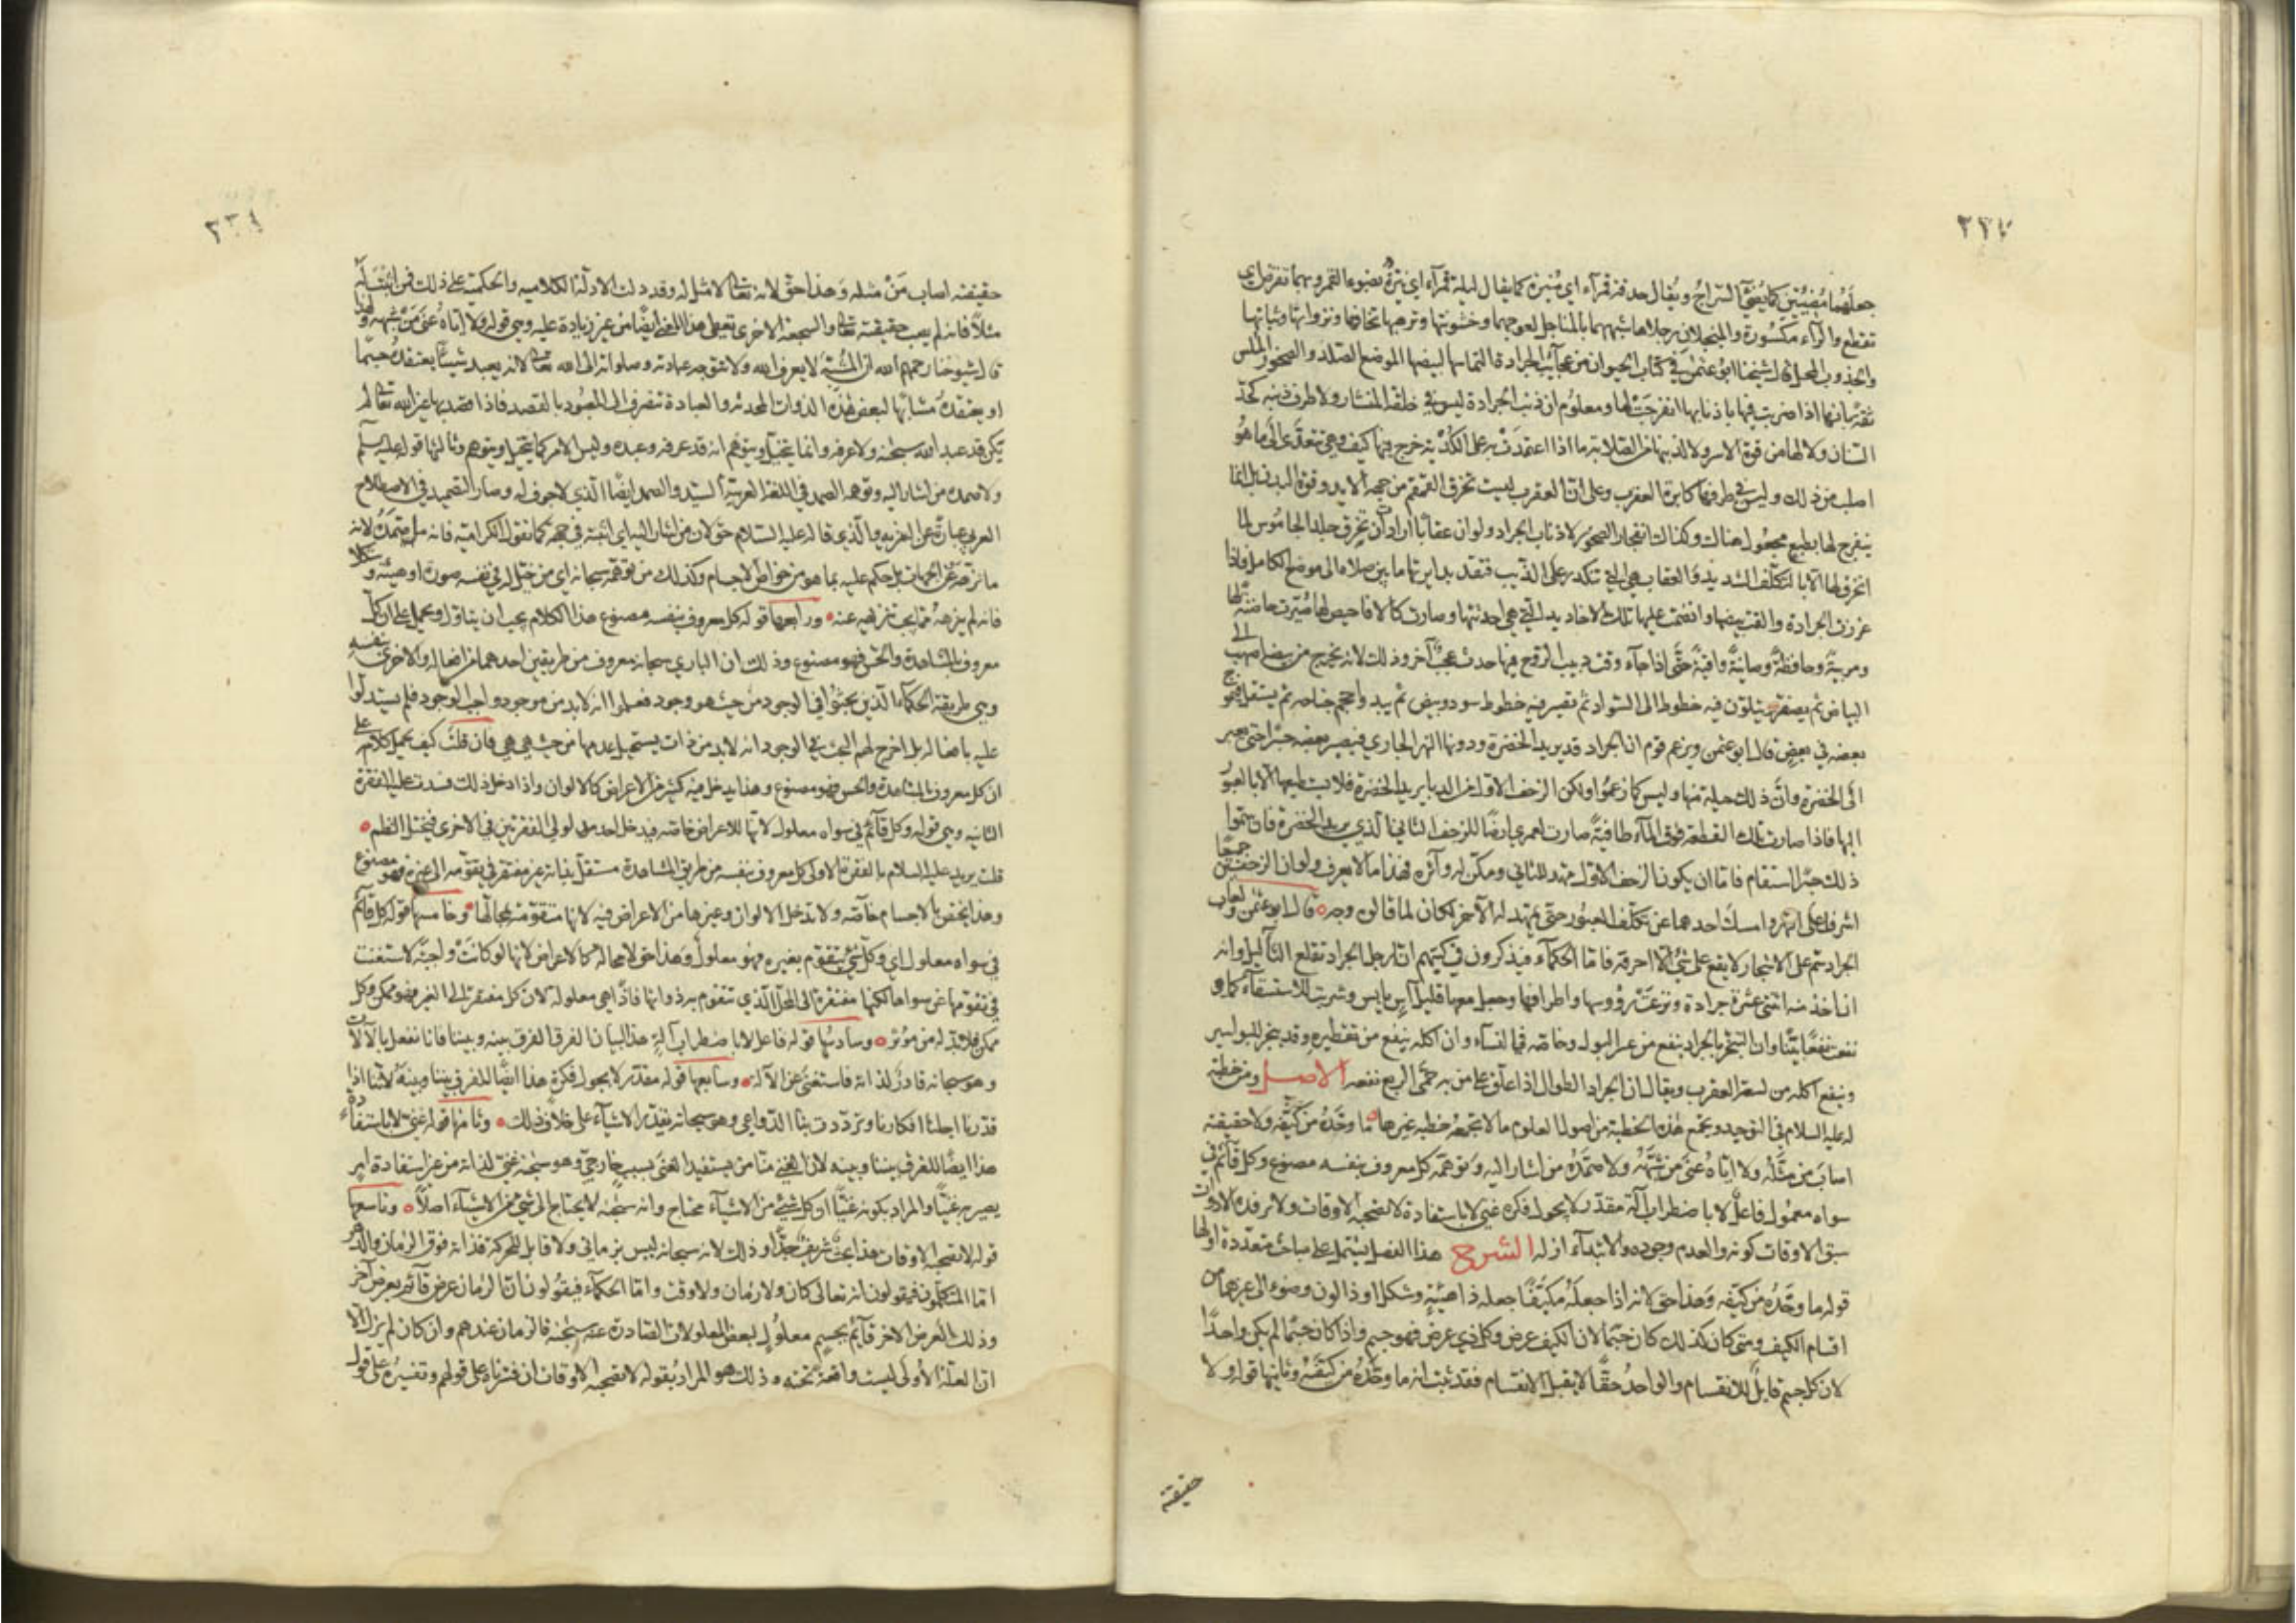 جعلهما مضيئتين كما يضئ السراج ويقال حدقة قمرآء اي منيرة كما يقال ليلة قمرآء اي نيرة بضوء القمر وبهما تقرض اي
تقطع والرآء مكسورة والمنجلان رجلاها شبههما بالمناجل لعوجهما وخشونتها ونزواتها وثباتها
قال شيخنا ابو عثمن في كتاب الحيوان من عجآئب الجرادة التماسها لبيضها الموضع الصلد والصخور الملس
ثقة بانها اذا ضربت فيها باذنابها انفرجت لها ومعلوم ان ذنب الجرادة ليس في خلقة المنشار ولا طرف ذنبه كحد
السنان ولا لها من قوة الاسر ولا لذنبها من الصلابة ما اذا اعتمدت به على الكدية خرج فيها كيف وهي تتعدى الى ما هو
اصلب من ذلك وليس في طرفها كابرة العقرب وعلى ان العقرب ليست تخرق القمقم من جهة الايد وقوة البدن بل انما
ينفرج لها بطبع مجعول هناك وكذلك انفجار الصخور لاذناب الجراد ولو ان عقابا ارادت ان تخرق جلد الجاموس لما
انخرق لها الا بالتكلف الشديد والعقاب هي التي تنكدر على الذئب فتقد بدابرتها ما بين صلاه الى موضع الكاهل فاذا
غرزت الجرادة والقت بيضها وانضمت عليها تلك الاخاديد التي هي احدثتها وصارت كالافاحيص لها صارت حاضنة لها
ومربية وحافظة وصاينة وواقية حتى اذا جآء وقت دبيب الروح فيها حدث عجب آخر وذلك لانه يخرج من بيضه اصهب الى
البياض ثم يصفر وتتلون فيه خطوط الى السواد ثم تصير فيه خطوط سود وبيض ثم يبدو حجم جناحه ثم يستقل فيموج
بعضه في بعض قال ابو عثمن ويزعم قوم ان الجراد قد يريد الخضرة ودونها النهر الجاري فيصير بعضه جسرا حتى يعبر
الى الخضرة وان ذلك حيلة منها وليس كما زعموا ولكن الزحف الاول من الدبا يريد الخضرة فلا يستطيعها الا بالعبور
اليها فاذا صارت تلك القطعة فوق المآء طافية صارت لعمري ارضا للزحف الثاني الذي يريد الخضرة فان سموا
ذلك جسرا استقام فاما ان يكون الزحف الاول مهد للثاني ومكن له وآثره فهذا ما لا يعرف ولو ان الزحفين جميعا
اشرفا على النهر وامسك احدهما عن تكلف العبور حتى يمهد له الآخر لكان لما قالوه وجه قال ابو عثمن ولعاب
الجراد سم على الاشجار لا يقع على شئ الا احرقه فاما الحكمآء فيذكرون في كتبهم ان ارجل الجراد تقلع الثآليل وانه
اذا اخذ منه اثنتي عشرة جرادة ونزعت رؤوسها واطرافها وجعل معها قليل آس يابس وشربت للاستسقآء كما هو
نفعت نفعا بينا وان التبخر بالجراد ينفع من عسر البول وخاصة في النسآء وان اكله ينفع من تقطيره وقد يبخر للبواسير
وينفع اكله من لسعة العقرب ويقال ان الجراد الطوال اذا علق على من به حمى الربع نفعه الاصل ومن خطبة
له عليه السلام في التوحيد وتجمع هذه الخطبة من اصول العلوم ما لا تجمعه خطبة غيرها ما وحده من كيفه ولا حقيقته
اصاب من مثله ولا اياه عنى من شبهه ولا صمده من اشار اليه وتوهمه كل معروف بنفسه مصنوع وكل قآئم في
سواه معلول فاعل لا باضطراب آلة مقدر لا بجول فكرة غني لا باستفادة لا تصحبه الاوقات ولا ترفده الادوات
سبق الاوقات كونه والعدم وجوده والابتدآء ازله الشرح هذا الفصل يشتمل على مباحث متعددة اولها
قوله ما وحده من كيفه وهذا حق لانه اذا جعله مكيفا جعله ذا هيئة وشكل او ذا لون وضوء الى غيرهما من
اقسام الكيف ومتى كان كذلك كان جسما لان الكيف عرض وكل ذي عرض فهو جسم واذا كان جسما لم يكن واحدا
لان كل جسم قابل للانقسام والواحد حقا لا يقبل الانقسام فقد ثبت انه ما وحده من كيفه وثانيها قوله ولا
حقيقته
حقيقته اصاب من مثله وهذا حق لانه تعالى لا مثل له وقد دلت الادلة الكلاميه والحكمية على ذلك فمن اثبت له
مثلا فانه لم يصب حقيقته تعالى والسجعة الاخرى تعطي هذا المعنى ايضا من غير زيادة عليه وهي قوله ولا اياه عنى من شبهه ولهذا
قال شيوخنا رحمهم الله ان المشبه لا يعرف الله ولا تتوجه عبادته وصلواته الى الله تعالى لانه يعبد شيئا يعتقده جسما
او يعتقده مشابها لبعض هذه الذوات المحدثة والعبادة تنصرف الى المعبود بالقصد فاذا قصد بها غير الله تعالى لم
يكن قد عبد الله سبحنه ولا عرفه وانما يتخيل ويتوهم انه قد عرفه وعبده وليس الامر كما يتخيل ويتوهم وثالثها قوله عليه السلم
ولا صمده من اشار اليه وتوهمه الصمد في اللغة العربية السيد والصمد ايضا الذي لا جوف له وصار التصميد في الاصطلاح
العرفي عبارة عن التنزيه والذي قاله عليه السلام حق لان من اشار اليه اي اثبته في جهة كما تقوله الكرامية فانه ما صمده لانه
ما نزهه عن الجهات بل حكم عليه بما هو من خواص الاجسام وكذلك من توهمه سبحانه اي من تخيل له في نفسه صورة او هيئة وشكلا
فانه لم ينزهه عما يجب تنزيهه عنه ورابعها قوله كل معروف بنفسه مصنوع هذا الكلام يجب ان يتاول ويحمل على ان كل
معروف بالمشاهدة والحس فهو مصنوع وذلك ان الباري سبحانه معروف من طريقين احدهما من افعاله والاخرى بنفسه
وهي طريقة الحكمآء الذين بحثوا في الوجود من حيث هو وجود فعلموا انه لا بد من موجود واجب الوجود فلم يستدلوا
عليه بافعاله بل اخرج لهم البحث في الوجود انه لا بد من ذات يستحيل عدمها من حيث هي هي فان قلت كيف يحمل كلامه على
ان كل معروف بالمشاهدة والحس فهو مصنوع وهذا يدخل فيه كثير من الاعراض كالالوان واذا دخل ذلك فسدت عليه الفقرة
الثانيه وهي قوله وكل قآئم في سواه معلول لانها للاعراض خاصة فيدخل احد مدلولي الفقرتين في الاخرى فيختل النظم
قلت يريد عليه السلام بالفقرة الاولى كل معروف بنفسه من طريق المشاهدة مستقلا بذاته غير مفتقر في تقومه الى غيره فهو مصنوع
وهذا يختص بالاجسام خاصة ولا تدخل الالوان وغيرها من الاعراض فيه لانها متقومة بمحالها وخامسها قوله كل قآئم
في سواه معلول اي وكل شئ يتقوم بغيره فهو معلول وهذا حق لا محالة كالاعراض لانها لو كانت واجبة لاستغنت
في تقومها عن سواها لكنها مفتقرة الى المحل الذي تتقوم به ذواتها فاذا هي معلولة لان كل مفتقر الى الغير فهو ممكن وكل
ممكن فلا بد له من مؤثر وسادسها قوله فاعل لا باضطراب آلة هذا لبيان الفرق بينه وبيننا فاننا نفعل بالآلات
وهو سبحانه قادر لذاته فاستغنى عن الآلة وسابعها قوله مقدر لا بجول فكرة هذا ايضا للفرق بيننا وبينه لاننا اذا
قدرنا اجلنا افكارنا وترددت بنا الدواعي وهو سبحانه يقدر الاشيآء على خلاف ذلك وثامنها قوله غني لا باستفادة
هذا ايضا للفرق بيننا وبينه لان الغني منا من يستفيد الغنى بسبب خارجي وهو سبحنه غني لذاته من غير استفادة امر
يصير به غنيا والمراد بكونه غنيا ان كل شئ من الاشيآء محتاج وانه سبحنه لا يحتاج الى شئ من الاشيآء اصلا وتاسعها
قوله لا تصحبه الاوقات هذا بحث شريف جدا وذلك لانه سبحانه ليس بزماني ولا قابل للحركة فذاته فوق الزمان والدهر
اما المتكلمون فيقولون انه تعالى كان ولا زمان ولا وقت واما الحكمآء فيقولون ان الزمان عرض قآئم بعرض آخر
وذلك العرض الاخر قآئم بجسم معلول لبعض المعلولات الصادرة عنه سبحنه فالزمان عندهم وان كان لم يزل الا
ان العلة الأولى ليست واقعة تحته وذلك هو المراد بقوله لا تصحبه الاوقات ان فسرناه على قولهم وتفسيره على قول